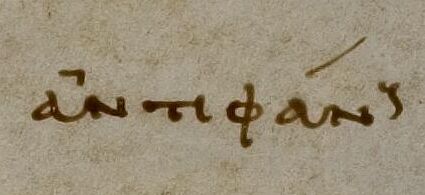 ἀντιφάνς